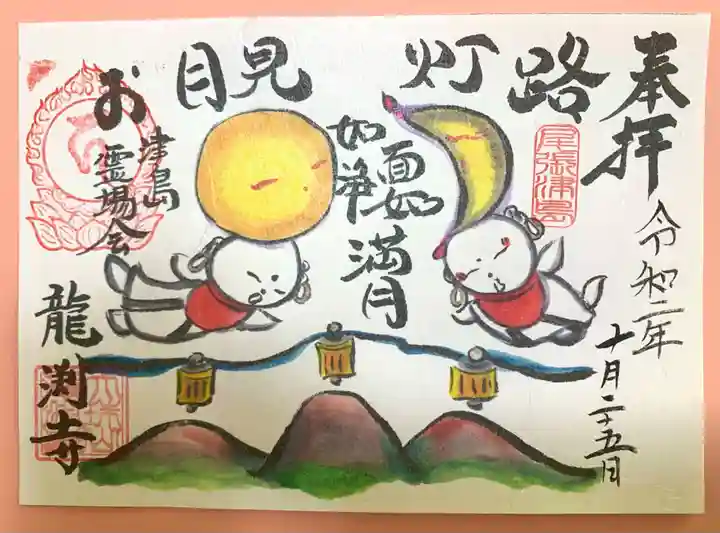 奉拝
令和二年
十月二十五日
尾張津島
路灯
見月お
面如
如浄
満月
津島
霊場会
龍渕寺